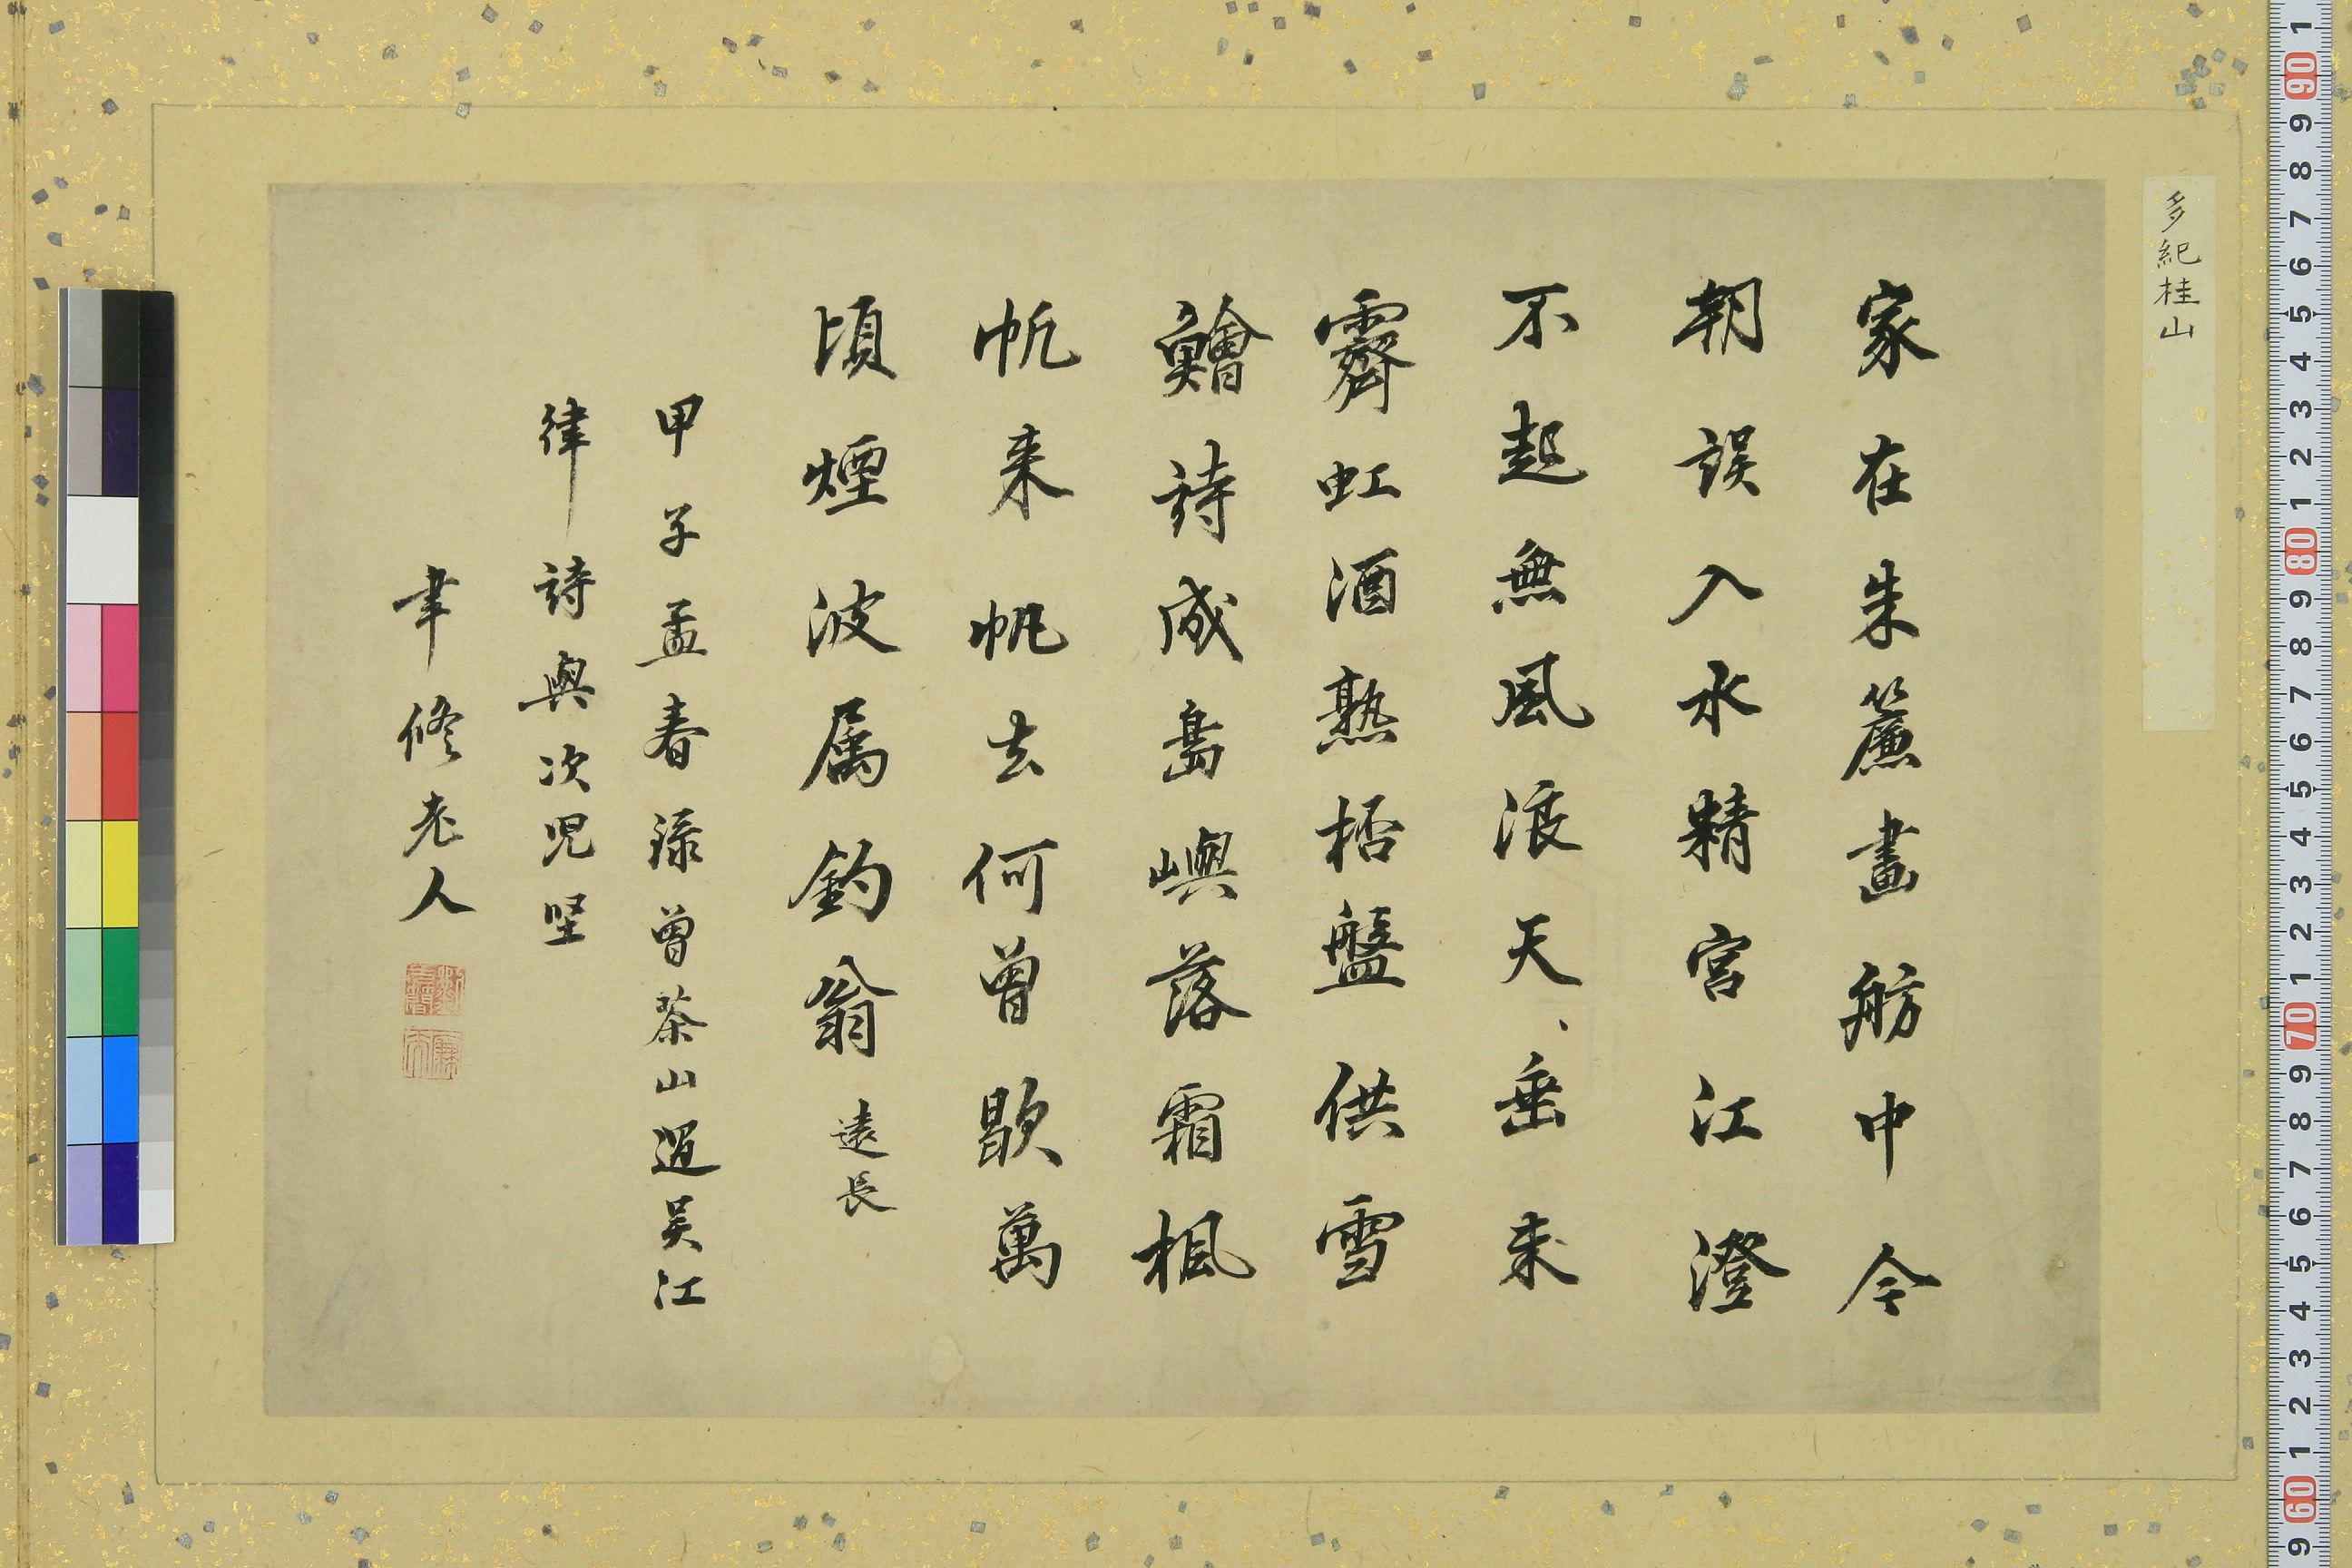 多紀桂山
家在朱簾畫舫中今
朝誤入水精宮江澄
不起無風浪天、垂未
霽虹酒熟桮盤供雪
鱠詩成島嶼落霜楓
帆来帆去何曾歇萬
頃煙波属釣翁 遠長
甲子孟春録曾茶山過吴江
律詩與次児堅
聿修老人